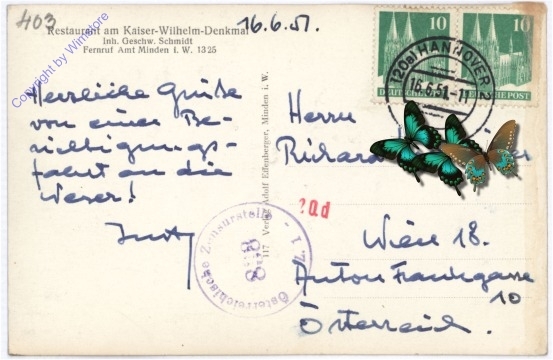 403
Restaurant am Kaiser-Wilhelm-Denkmal
Inh. Geschw. Schmidt
Fernruf Amt Minden i. W. 1325
Copyright by Winstore
16.6.51.
10
10
DEUTSCHE POST
DEUTSCHE POST
(20a) HANNOVER 2
16.6.51.-11
Herzliche Grüße
von einer Be-
sichtigungs-
fahrt an die
Weser!
117 Verlag Adolf Eßenberger, Minden i. W.
Herrn
Richard
20d
Österreichische Zensurstelle
883
Wien 18.
Anton Frankgasse
10
Österreich.